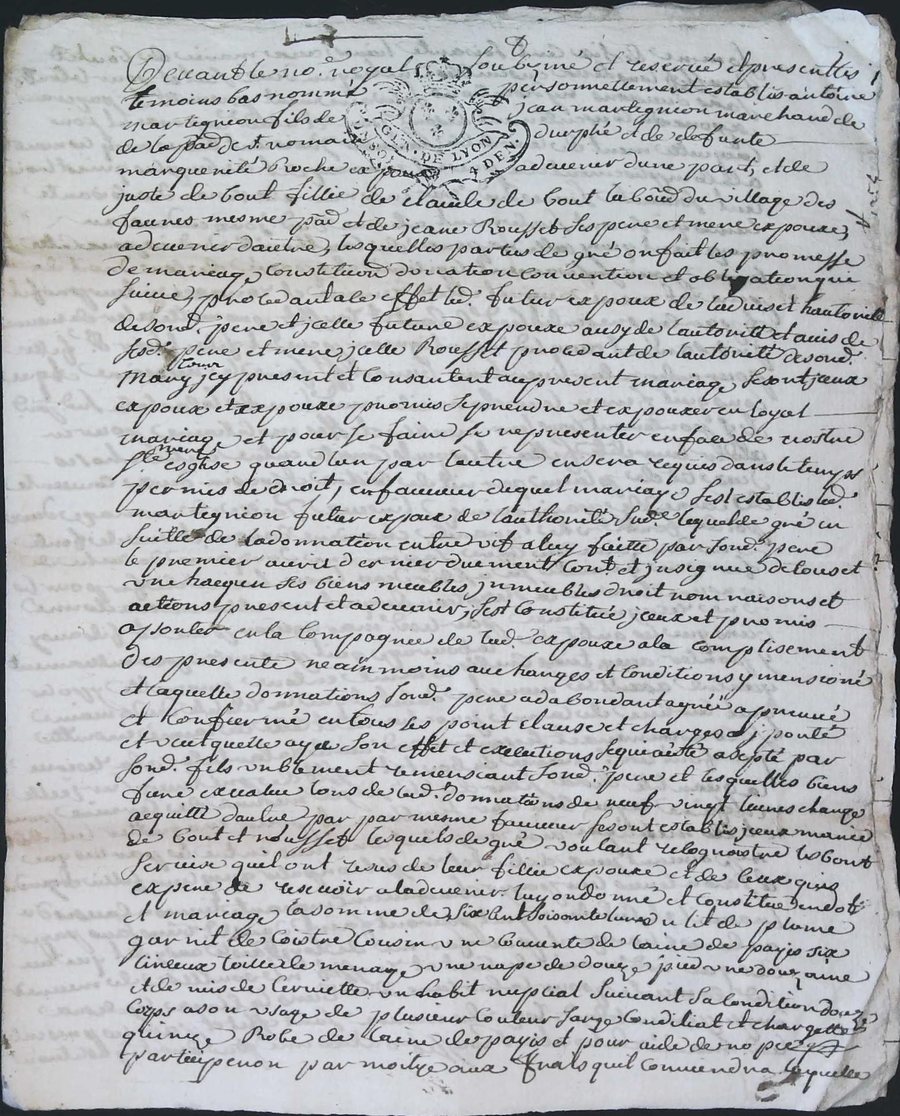 Devant le no.re royal soubsigné et reservé et presents les
temoins bas nommé personnellement establis antoine
martegnion fils de jean martegnion marchand de
de la pad de st. romain durphé et de defunte
marguerite Roche expoux advenir dune part, et de
juste de bout fillie de claude de bout labour du village des
faunes mesme pad et de jeane Rousset ses pere et mere expouze
advenir dautre, lesquelles parties de gré on fait les promesse
de mariage, constitution donation convention et obligation que
suive, procedant ale effet led. futur expoux de ladvis et hautorité
de sond. pere et jcelle future expouze ausy de lautorité et avis de
sesd. pere et mere jcelle Rousset procedant de lautorité de sond.
mary jcy present et consantent au present mariage se sont jceux
expoux et expouze promis se prendre et expouzer en loyal
mariage et pour se faire se representer en face de nostre
ste mere esglise quand lun par lautre en sera requis dans le temps
permis de droit, en faveur duquel mariage sest establis led.
martegnion futur expoux de lauthorité sud. lequel de gré en
suitte de la donnation entre vif a luy faitte par sond. pere
le premier avril dernier duement cont. et jnsignué de tous et
vn chacqun ses biens meubles jmmeubles droit nom raisons et
actions present et advenir, sest constitué jceux et promis
apsorter en la compagnée de lad. expouze a la complisement
des presente neainmoins aux charges et conditions y mensioné
et laquelle donnations sond. pere adabondant agréé apreuvé
et confiermé en tous ses point clause et charges a jpouté
et veut quelle aye son effet et exsecutions se qua esté acepté par
sond. fils umblement remersiant sond. pere et lesquelles biens
fune exvalué lons de lad. donnations de neufr vingt livres charge
acquitté dautre par par mesme faveur se sont establis jceux marié
de bout et rousset lesquels de gré voulant recognoistre les bont
service quel ont resus de leur fillie expouze et de ceux quis
expere de reservoir a ladvenir luy on donné et constitué en dot
et mariage la somme de six cent soisante livres vn lit de plume
garnit de coistre cousin vne couverte de laine de payis six
linseux toille de menage vne nape de douze pied vne douzaine
et de mis de cerviette vn habit nuptial suivant sa condition douze
corps a son vsage de plusieur couleur sarge condiliat et chargette
quinze Robe de laine de payis et pour aide de nopce
partiesiperon par moitye aux frais quil conviendra. laquelle
GEN. DE LYON
4 DEN.